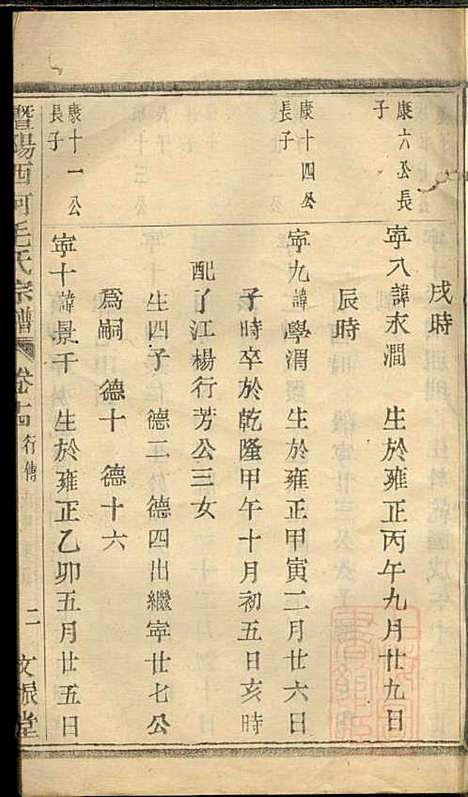 戌時
康六公長子
寜八諱永澗 生於雍正丙午九月廿九日
辰時
康十四公長子
寜九諱學渭 生於雍正甲寅二月廿六日
子時卒於乾隆甲午十月初五日亥時
配了江楊行芳公三女
生四子 德二 德四出繼寜廿七公
爲嗣 德十 德十六
康十一公長子
寜十諱景千 生於雍正乙卯五月廿五日
暨陽西河毛氏宗譜 卷十四 行傳 二 文振堂